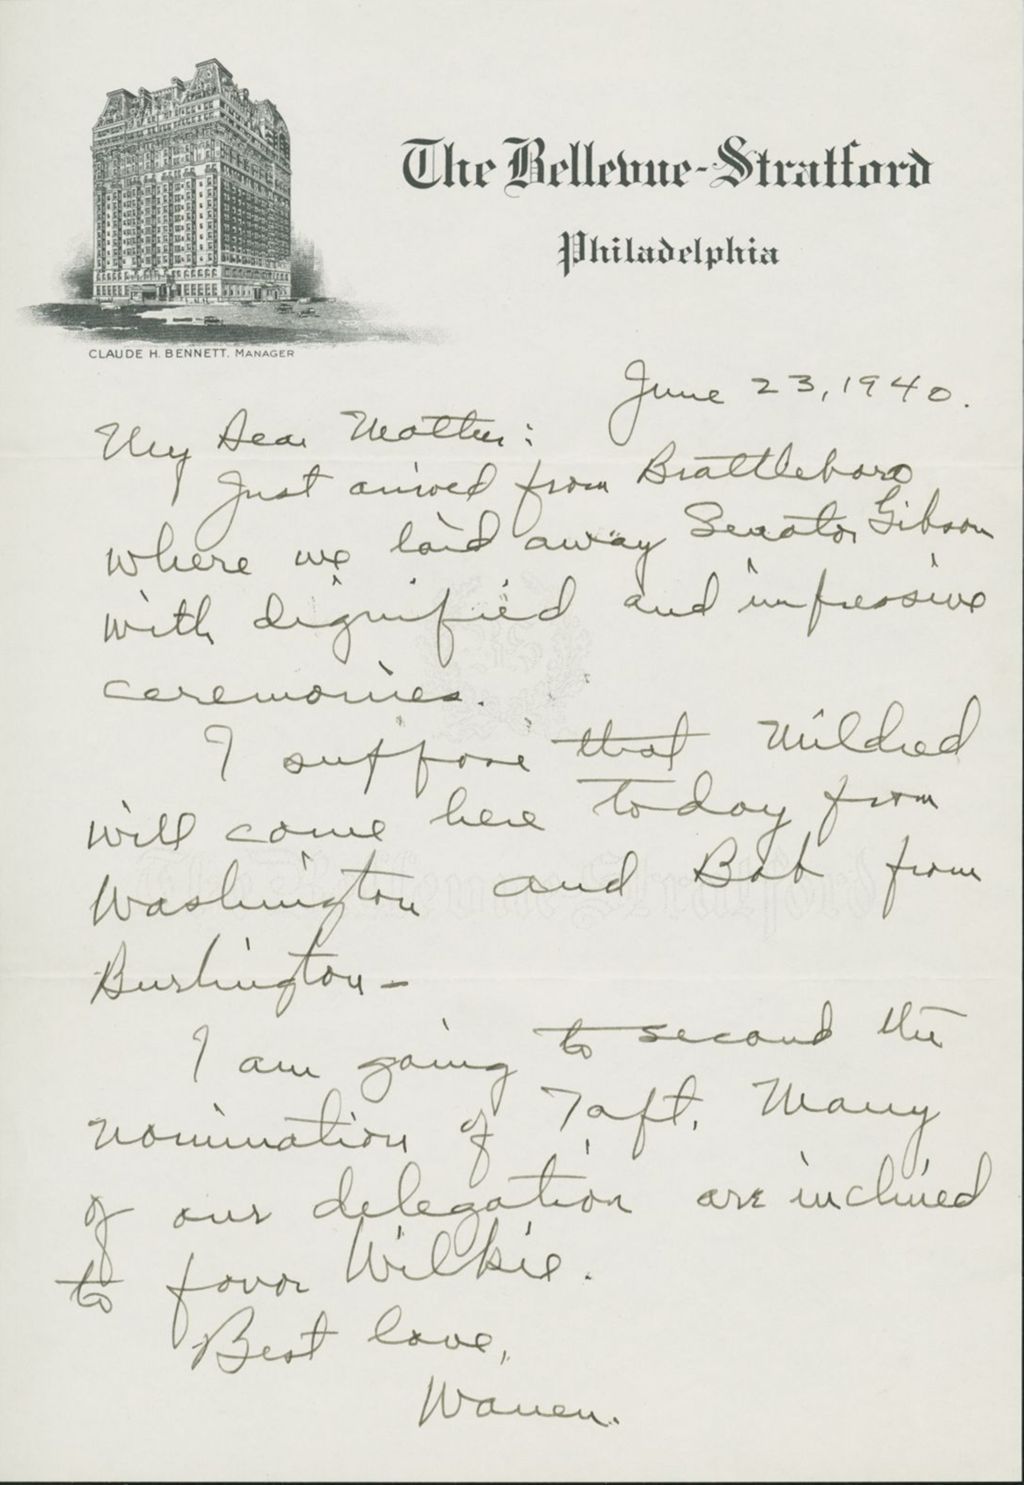 The Bellevue-Stratford
Philadelphia
CLAUDE H. BENNETT, MANAGER
June 23, 1940.
My Dear Mother:
Just arrived from Brattleboro
where we laid away Senator Gibson
with dignified and impressive
ceremonies.
I suppose that Mildred
will come here today from
Washington and Bob from
Burlington-
I am going to second the
nomination of Taft. Many
of our delegation are inclined
to favor Wilkie.
Best love,
Warren.